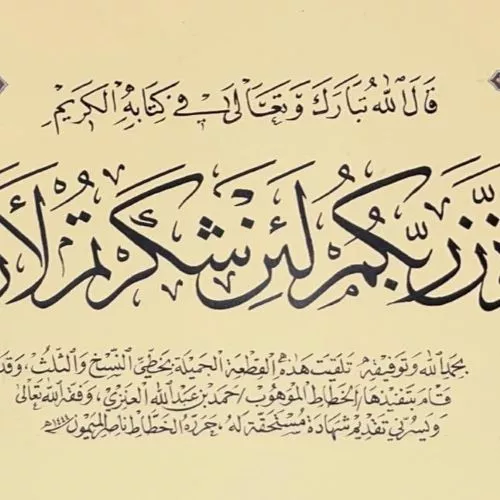 قَالَ اللهُ تَبَارَكَ وَتَعَالَى فِي كِتَابِهِ الْكَرِيمِ
رَبُّكُمْ لَئِنْ شَكَرْتُمْ
بحمد الله وتوفيقه تلقيت هذه القطعة الجميلة بخطي النسخ والثلث، وقد
قام بتنفيذها/الخطاط الموهوب/حمد بن عبد الله العنزي، وفقه الله تعالى
ويسرني تقديم شهادة مستحقة له، حرره الخطاط ناصر الميمون